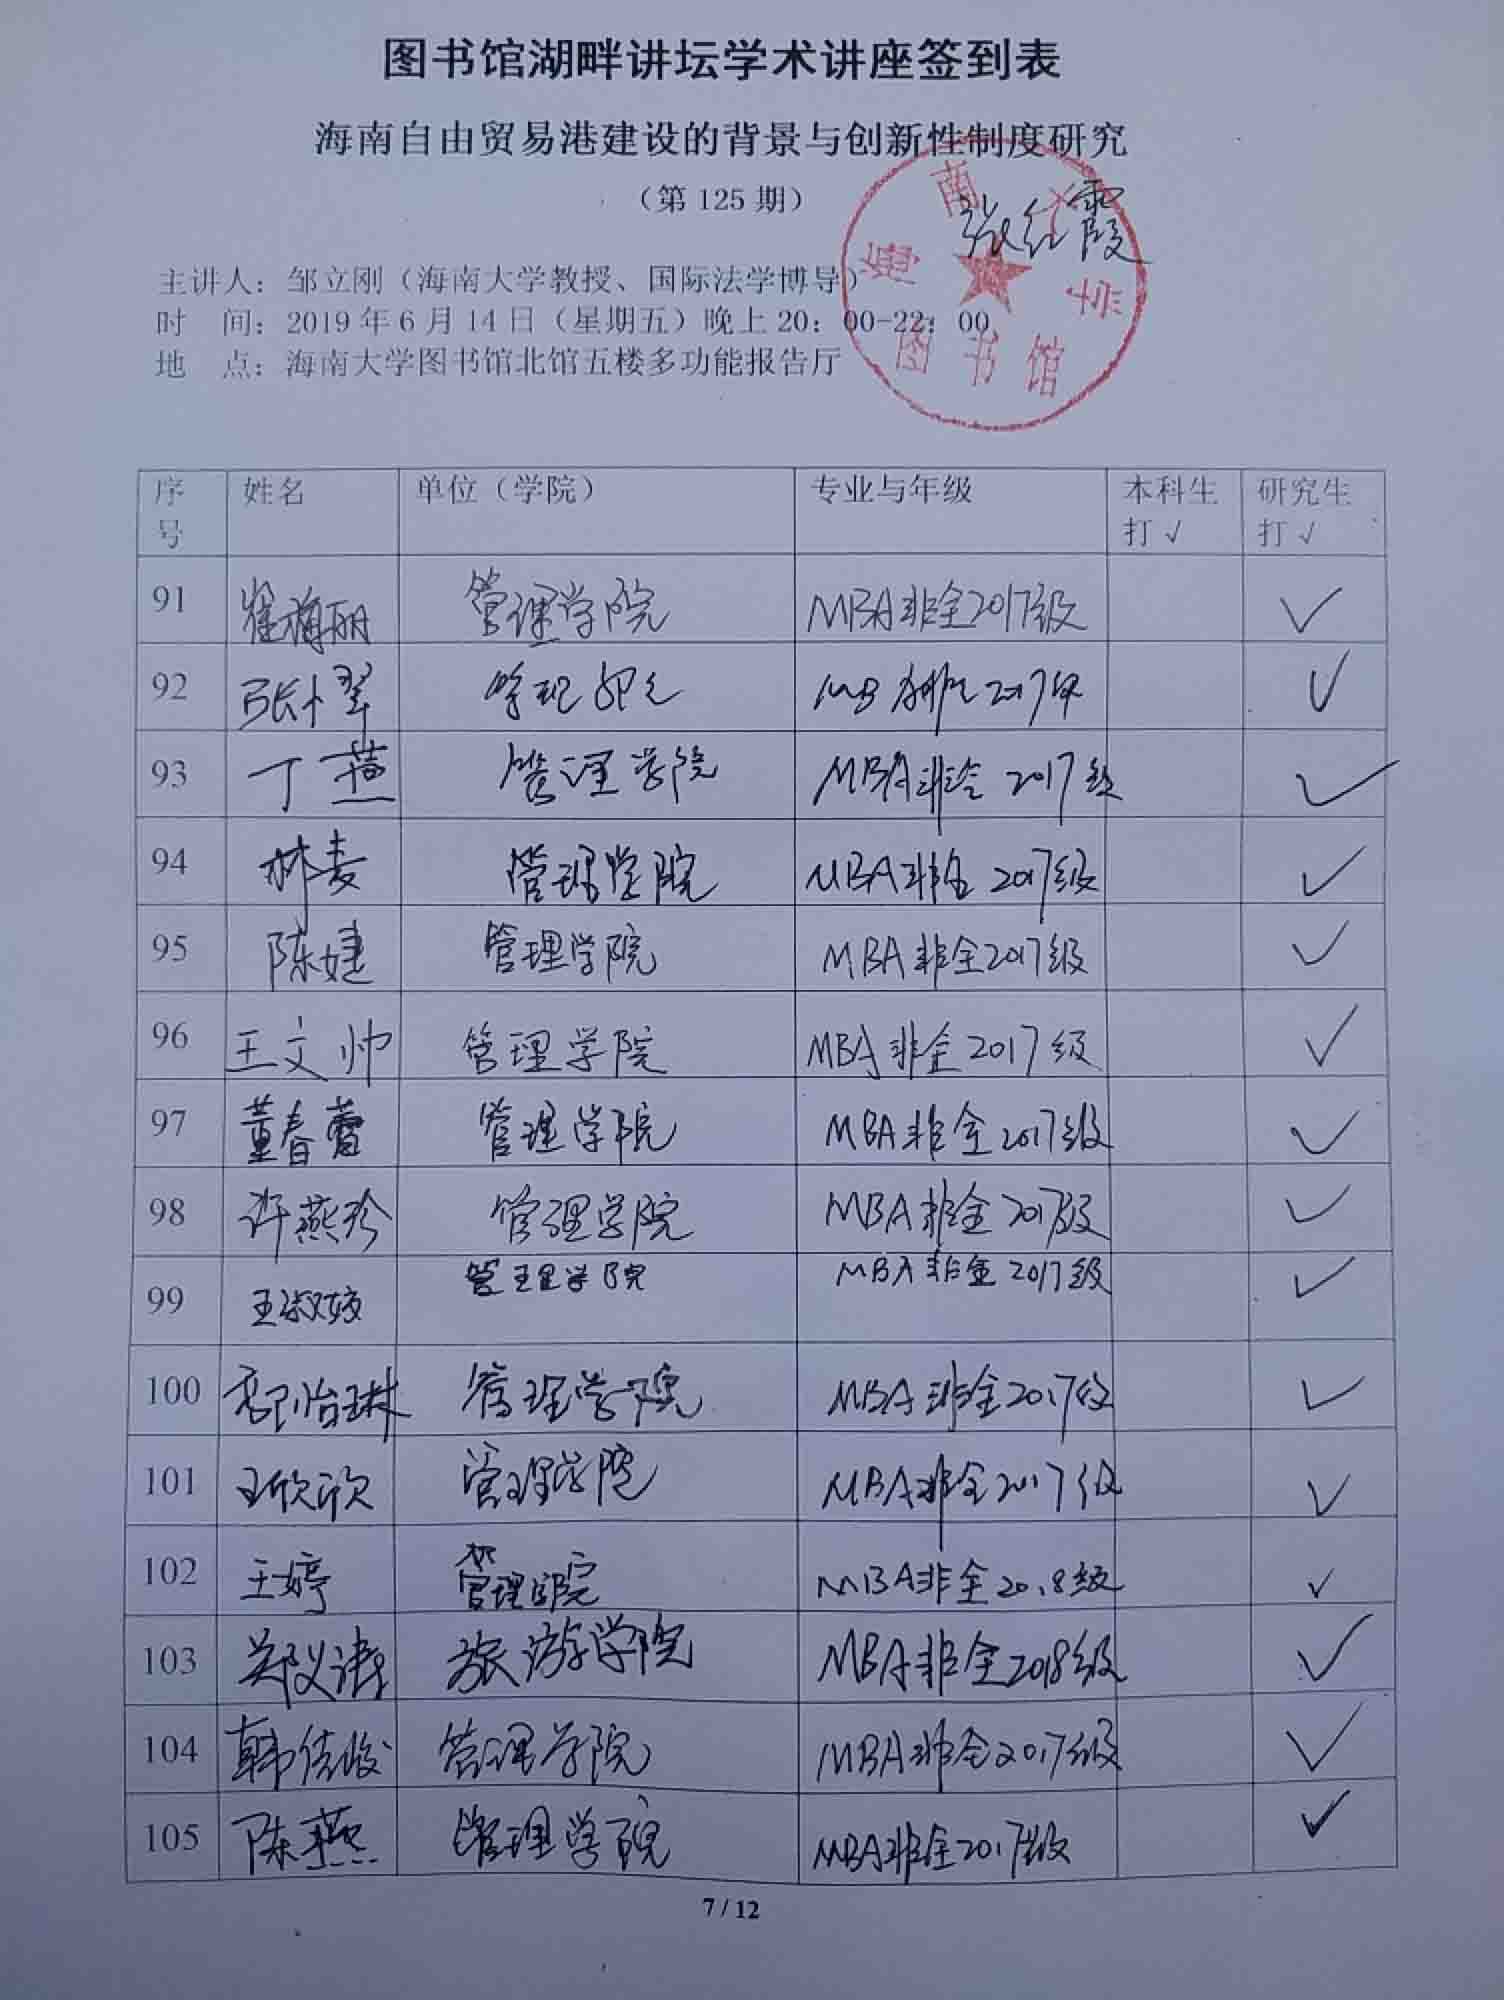 图书馆湖畔讲坛学术讲座签到表
海南自由贸易港建设的背景与创新性制度研究
（第 125 期）
张红霞
主讲人：邹立刚（海南大学教授、国际法学博导）
时 间：2019 年 6 月 14 日（星期五）晚上 20：00-22：00
地 点：海南大学图书馆北馆五楼多功能报告厅
海南大学
图书馆
序号 姓名 单位（学院） 专业与年级 本科生打√ 研究生打√
91 管理学院 MBA非全2017级 √
92 √
93 丁燕 管理学院 MBA非全 2017级 √
94 林麦 管理学院 MBA非全 2017级 √
95 陈婕 管理学院 MBA非全2017级 √
96 王文帅 管理学院 MBA非全2017级 √
97 董春蕾 管理学院 MBA非全2017级 √
98 许燕珍 管理学院 MBA非全2017级 √
99 王淑婷 管理学院 MBA非全2017级 √
100 管理学院 MBA非全2017级 √
101 王欣欣 管理学院 MBA非全2017级 √
102 王婷 管理学院 MBA非全2018级 √
103 旅游学院 MBA非全2018级 √
104 韩佳俊 管理学院 MBA非全2017级 √
105 陈燕 管理学院 MBA非全2017级 √
7 / 12